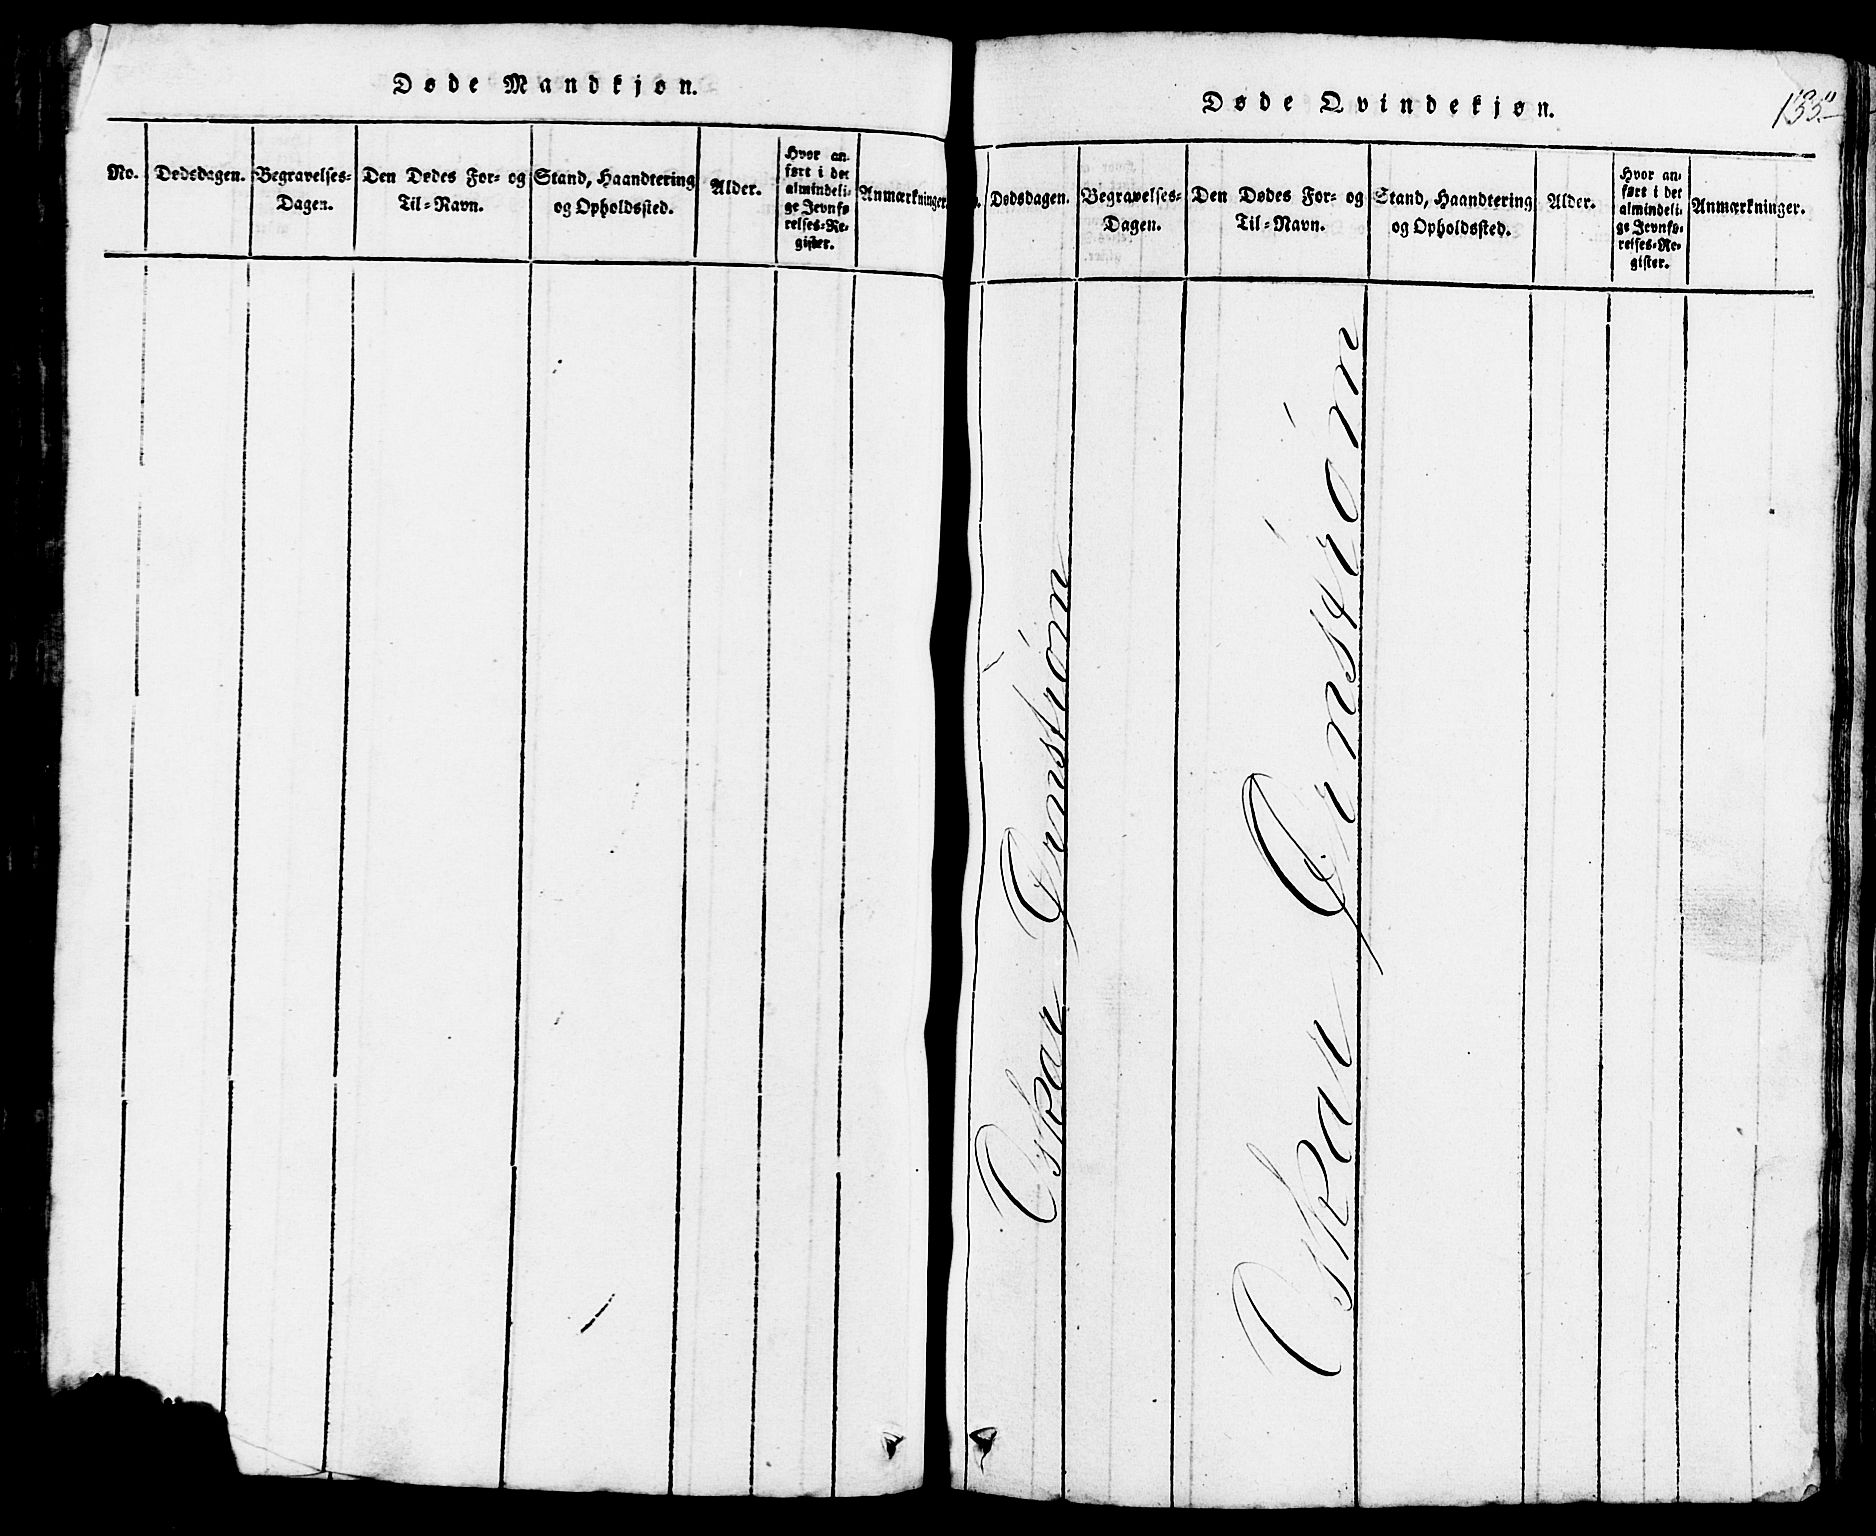 Døde Mandkjøn.
No.
Dødsdagen.
Begravelses-
Dagen.
Den Dødes For- og
Til-Navn.
Stand, Haandtering
og Opholdssted.
Alder.
Hvor an-
ført i det
almindeli-
ge Jevnfø-
relses-Re-
gister.
Anmærkninger
Døde Qvindekjøn.
o.
Dødsdagen.
Begravelses-
Dagen.
Den Dødes For- og
Til-Navn.
Stand, Haandtering
og Opholdssted.
Alder.
Hvor an-
ført i det
almindeli-
ge Jevnfø-
relses-Re-
gister.
Anmærkninger.
Oskar Ørnstrøm
Oskar Ørnstrøm